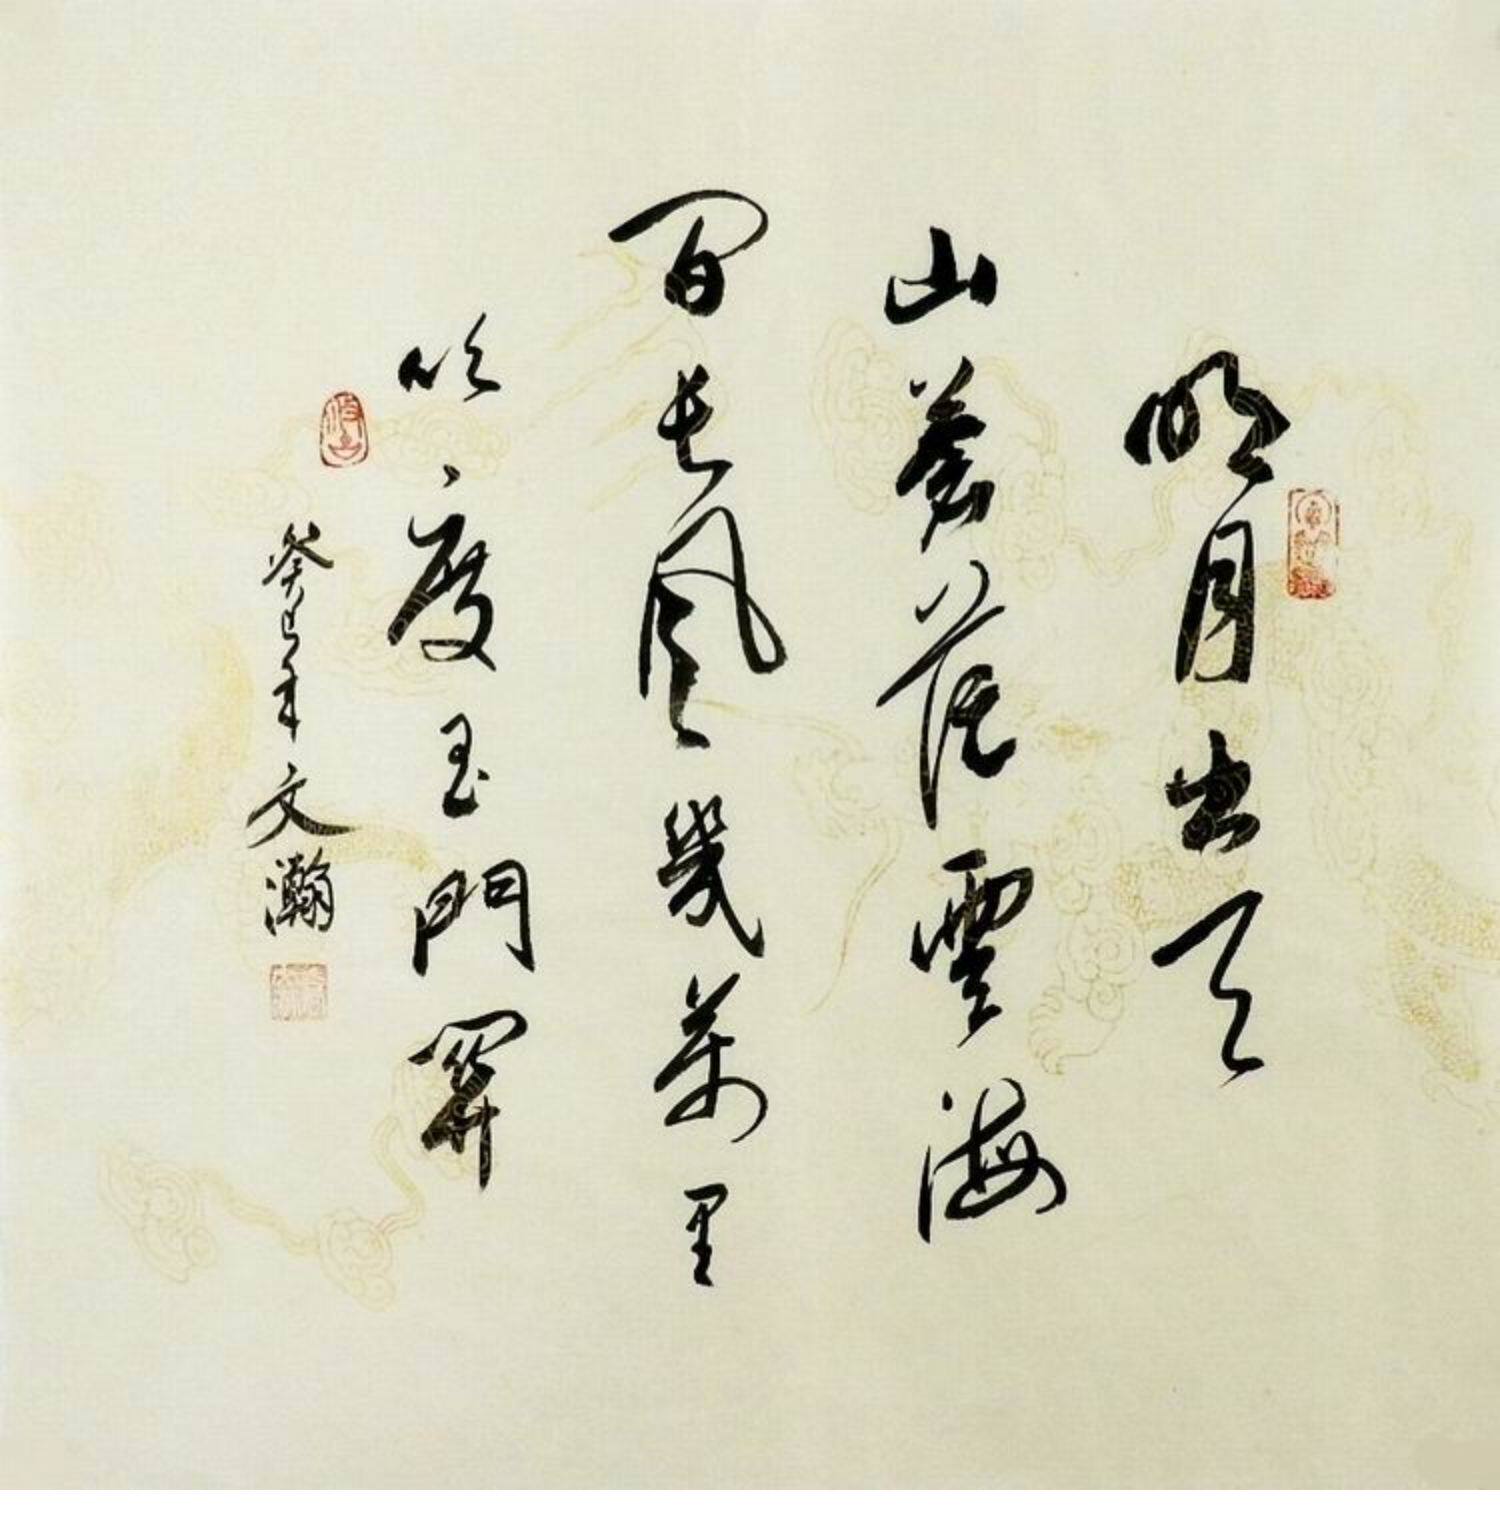 明月出天
山蒼茫雲海
間長風幾萬里
吹度玉門關
癸巳年文瀚